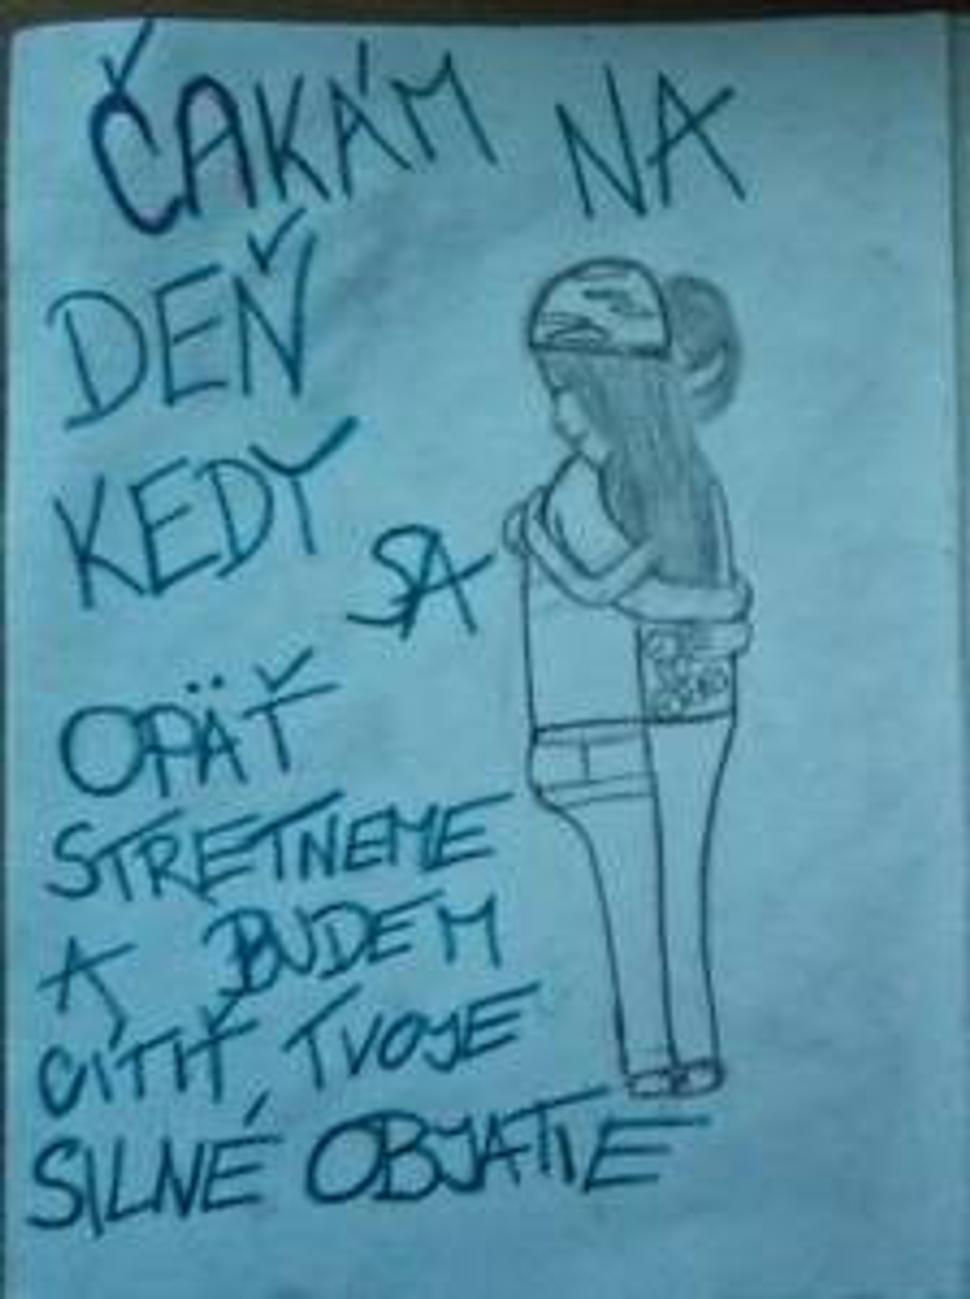 ČAKÁM NA
DEŇ
KEDY
SA
OPÄŤ
STRETNEME
A BUDEM
CÍTIŤ TVOJE
SILNÉ OBJATIE